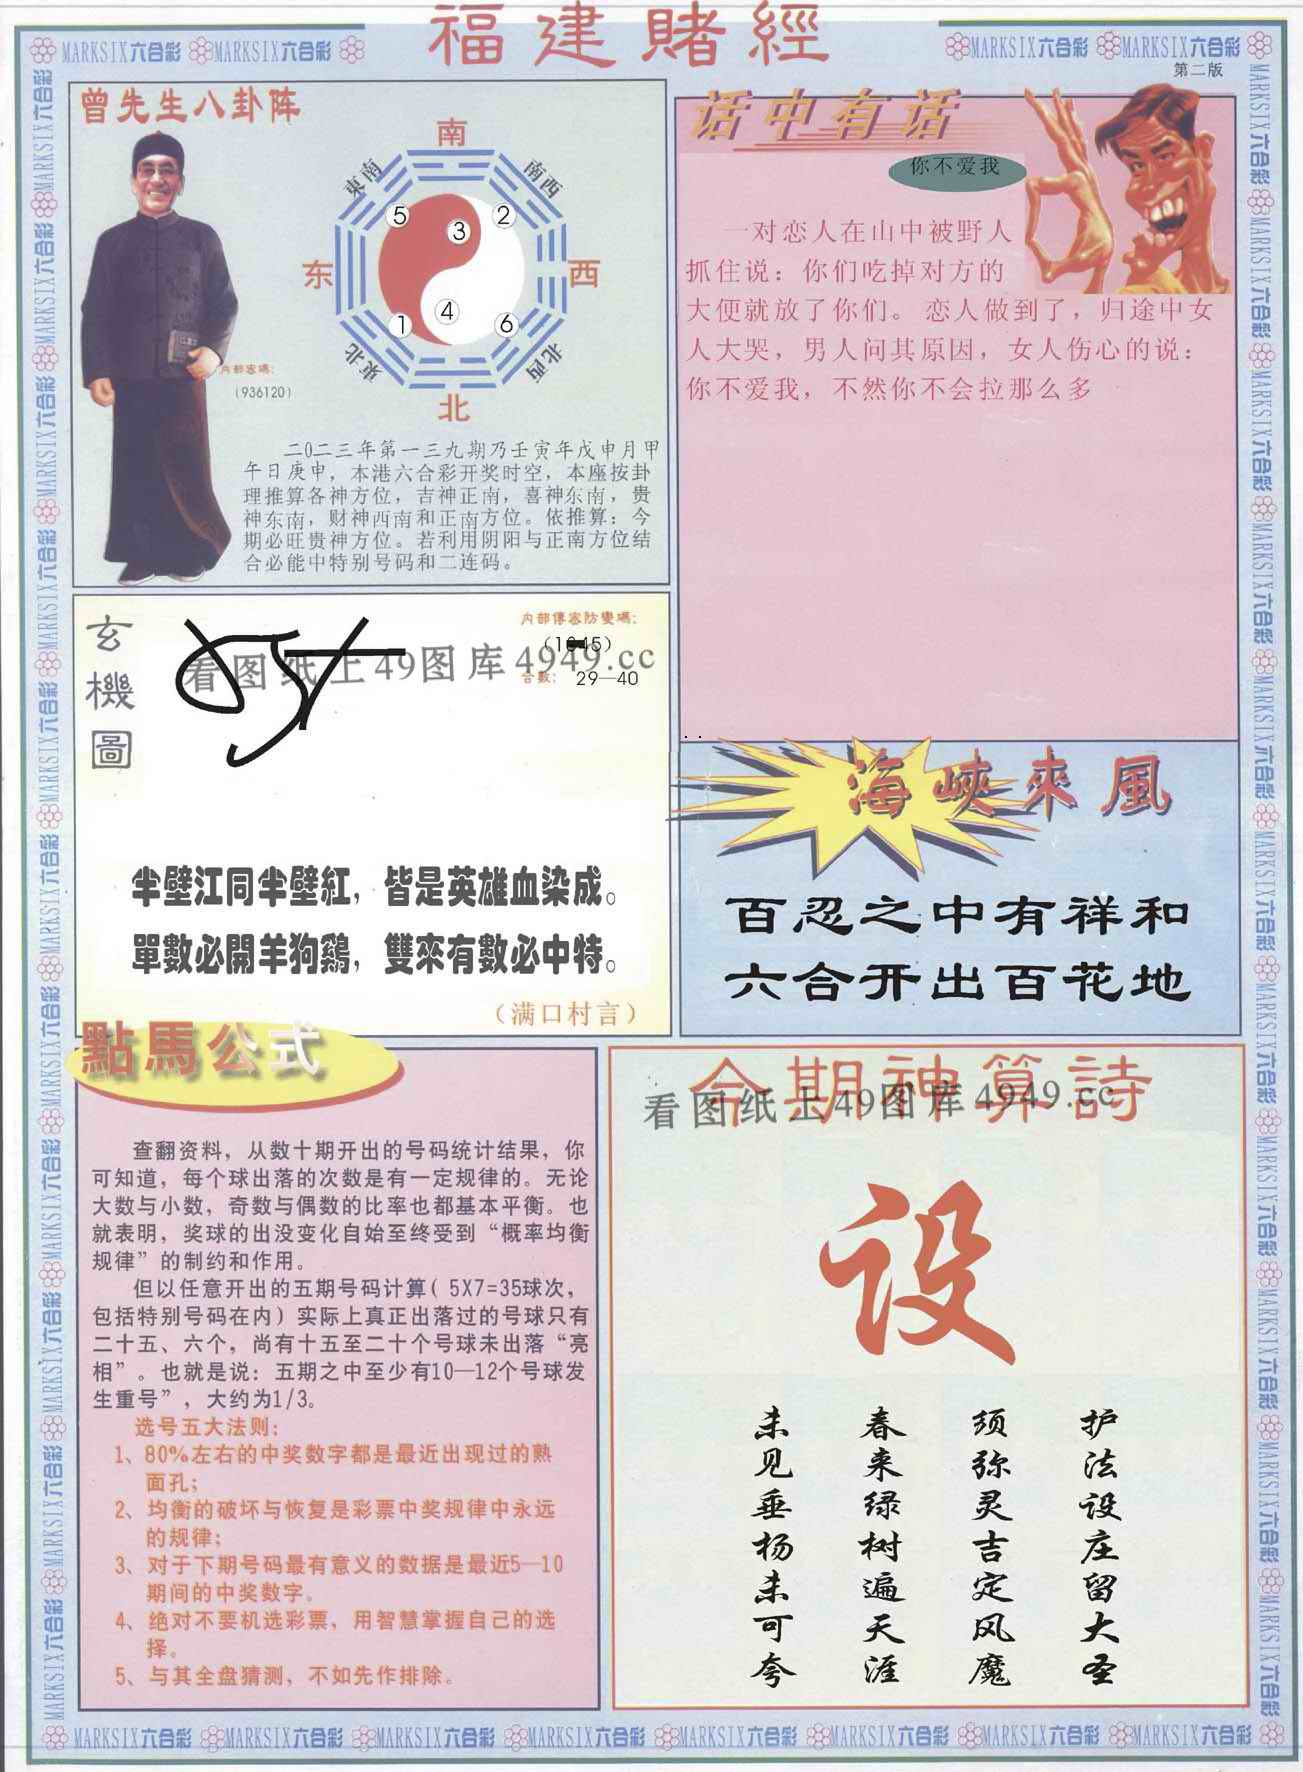 福建賭經
MARKSIX六合彩 MARKSIX六合彩
MARKSIX六合彩 MARKSIX六合彩
第二版
曾先生八卦阵
南
東南
南西
5
3
2
东
西
4
1
6
東北
北西
北
内部密碼:
(936120)
二0二三年第一三九期乃壬寅年戊申月甲
午日庚申，本港六合彩开奖时空，本座按卦
理推算各神方位，吉神正南，喜神东南，贵
神东南，财神西南和正南方位。依推算：今
期必旺贵神方位。若利用阴阳与正南方位结
合必能中特别号码和二连码。
话中有话
你不爱我
一对恋人在山中被野人
抓住说：你们吃掉对方的
大便就放了你们。恋人做到了，归途中女
人大哭，男人问其原因，女人伤心的说：
你不爱我，不然你不会拉那么多
玄機圖
内部傳密防變碼:
合數: 29—40
看图纸上49图库4949.cc
半壁江同半壁紅，皆是英雄血染成。
單數必開羊狗鷄，雙來有數必中特。
（满口村言）
海峽來風
百忍之中有祥和
六合开出百花地
點馬公式
查翻资料，从数十期开出的号码统计结果，你
可知道，每个球出落的次数是有一定规律的。无论
大数与小数，奇数与偶数的比率也都基本平衡。也
就表明，奖球的出没变化自始至终受到“概率均衡
规律”的制约和作用。
但以任意开出的五期号码计算( 5X7=35球次，
包括特别号码在内）实际上真正出落过的号球只有
二十五、六个，尚有十五至二十个号球未出落“亮
相”。也就是说：五期之中至少有10—12个号球发
生重号”，大约为1/3。
选号五大法则:
1、80%左右的中奖数字都是最近出现过的熟
面孔;
2、均衡的破坏与恢复是彩票中奖规律中永远
的规律;
3、对于下期号码最有意义的数据是最近5—10
期间的中奖数字。
4、绝对不要机选彩票，用智慧掌握自己的选
择。
5、与其全盘猜测，不如先作排除。
今期神算詩
看图纸上49图库4949.cc
设
护法设庄留大圣
须弥灵吉定风魔
春来绿树遍天涯
未见垂杨未可夸
MARKSIX六合彩 MARKSIX六合彩 MARKSIX六合彩 MARKSIX六合彩 MARKSIX六合彩 MARKSIX六合彩 MARKSIX六合彩 MARKSIX六合彩